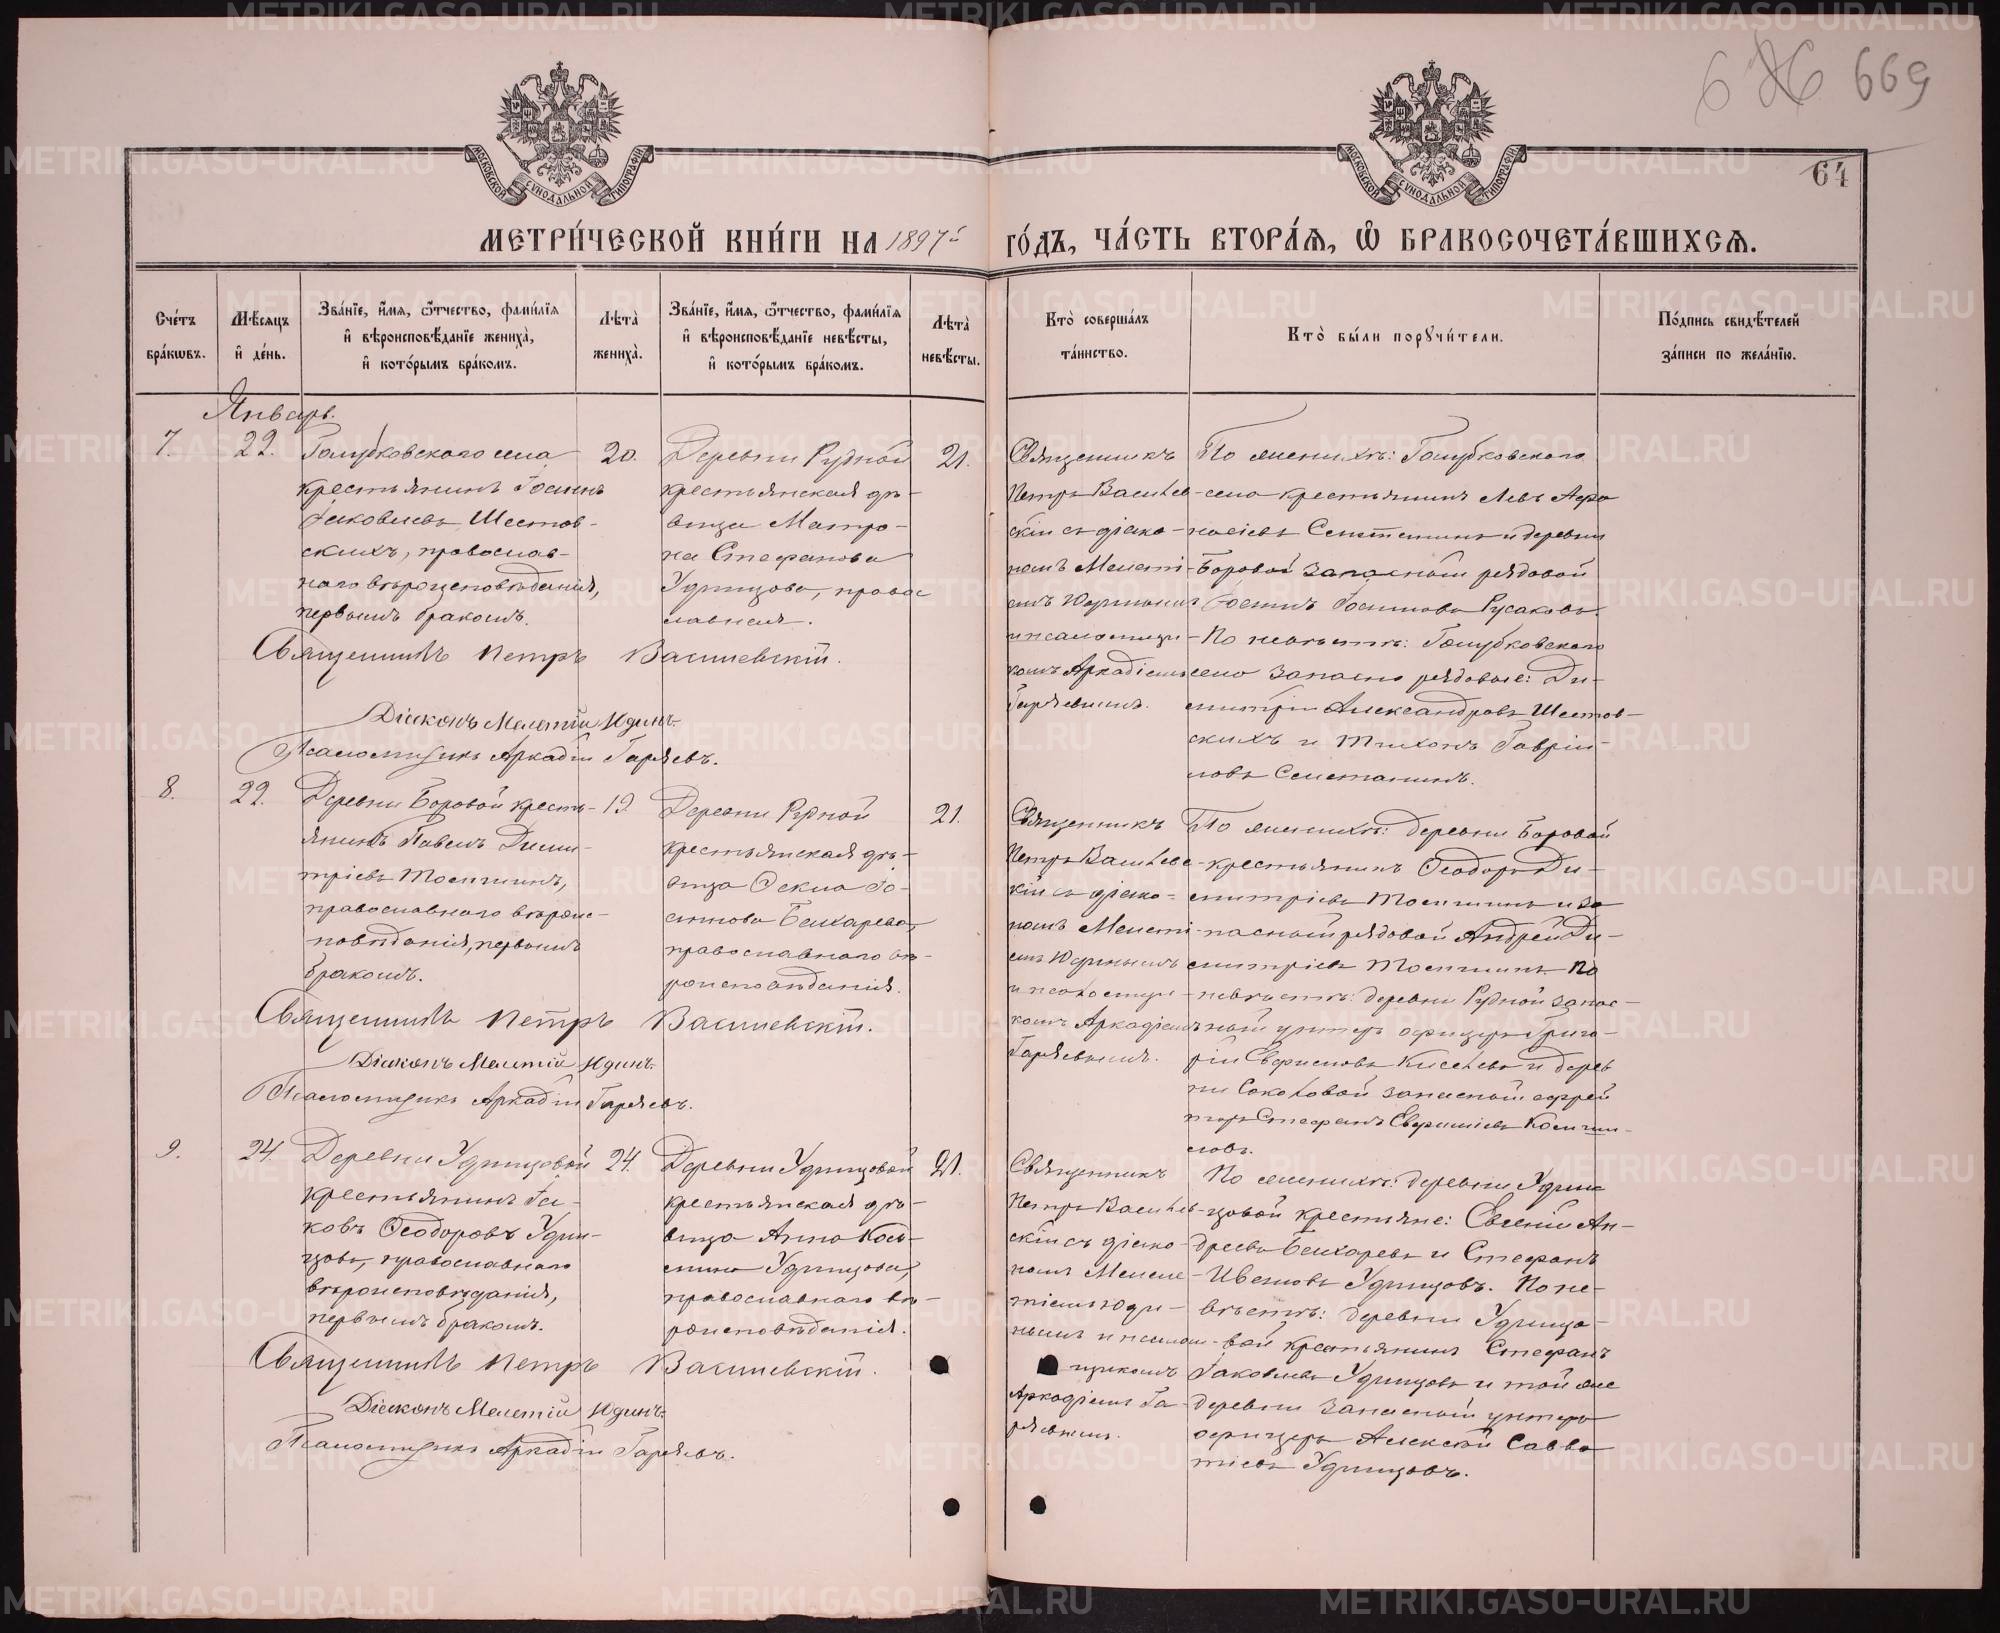 6 86 669
64
МОСКОВСКОЙ СУНОДАЛЬНОЙ ТИПОГРАФІИ
МОСКОВСКОЙ СУНОДАЛЬНОЙ ТИПОГРАФІИ
МЕТРИ́ЧЕСКОЙ КНИ́ГИ НА 1897й ГО́ДЪ, ЧА́СТЬ ВТОРА́Я, Ѡ҆ БРАКОСОЧЕТА́ВШИХСЯ.
Сче́тъ
бра́кѡвъ.
Мѣ́сяцъ
и҆ де́нь.
Зва́нїе, и҆́мя, ѻ҆́тчество, фами́лїя
и҆ вѣроисповѣ́данїе жениха̀,
и҆ кото́рымъ бра́комъ.
Лѣ́та
жениха̀.
Зва́нїе, и҆́мя, ѻ҆́тчество, фами́лїя
и҆ вѣроисповѣ́данїе невѣ́сты,
и҆ кото́рымъ бра́комъ.
Лѣ́та
невѣ́сты.
Кто̀ соверша́лъ
та́инство.
Кто̀ бы́ли порꙋчи́тели.
По́дпись свидѣ́телей
за́писи по жела́нїю.
Январь.
7.
22.
Голубковскаго села
крестьянинъ Іосифъ
Іаковлевъ Шестов-
скихъ, православ-
наго вѣроисповѣданія,
первымъ бракомъ.
20.
Деревни Рудной
крестьянская дѣ-
вица Матро-
на Стефанова
Удинцова, право-
славная.
21.
Священникъ
Петръ Василев-
скій съ діако-
номъ Мелеті-
емъ Юдинымъ
и псаломщи-
комъ Аркадіемъ
Гаряевымъ.
По женихѣ: Голубковскаго
села крестьянинъ Левъ Афа-
насіевъ Сметанинъ и деревни
Боровой запасный рядовой
Іосифъ Іосифовъ Русаковъ.
По невѣстѣ: Голубковскаго
села запасные рядовые: Ди-
митрій Александровъ Шестов-
скихъ и Тихонъ Гаврии-
ловъ Сметанинъ.
Священникъ Петръ Василевскій.
Діаконъ Мелетій Юдинъ.
Псаломщикъ Аркадій Гаряевъ.
8.
22.
Деревни Боровой кресть-
янинъ Павелъ Дими-
тріевъ Томшинъ,
православнаго вѣроис-
повѣданія, первымъ
бракомъ.
19.
Деревни Рудной
крестьянская дѣ-
вица Фекла Іо-
сифова Бахарева,
православнаго вѣ-
роисповѣданія.
21.
Священникъ
Петръ Василевс-
кій съ діако-
номъ Мелеті-
емъ Юдинымъ
и псаломщи-
комъ Аркадіемъ
Гаряевымъ.
По женихѣ: деревни Боровой
крестьянинъ Ѳеодоръ Ди-
митріевъ Томшинъ и за-
пасный рядовой Андрей Ди-
митріевъ Томшинъ. По
невѣстѣ: деревни Рудной запас-
ный унтеръ офицеръ Григо-
рій Евфимовъ Киселевъ и дерев-
ни Соколовой запасный ефрей-
торъ Стефанъ Евфиміевъ
ловъ.
Священникъ Петръ Василевскій.
Діаконъ Мелетій Юдинъ.
Псаломщикъ Аркадій Гаряевъ.
9.
24.
Деревни Удинцовой
крестьянинъ Іа-
ковъ Ѳеодоровъ Удин-
цовъ, православнаго
вѣроисповѣданія,
первымъ бракомъ.
24.
Деревни Удинцовой
крестьянская дѣ-
вица Анна Кось-
мина Удинцова,
православнаго вѣ-
роисповѣданія.
21.
Священникъ
Петръ Василев-
скій съ діако-
номъ Меле-
тіемъ Юди-
нымъ и псалом-
щикомъ
Аркадіемъ Га-
ряевымъ.
По женихѣ: деревни Удин-
цовой крестьяне: Евгеній Ан-
дреевъ Бахаревъ и Стефанъ
Ивановъ Удинцовъ. По не-
вѣстѣ: деревни Удинцо-
вой крестьянинъ Стефанъ
Іаковлевъ Удинцовъ и той же
деревни запасный унтеръ
офицеръ Алексѣй Савва-
тіевъ Удинцовъ.
Священникъ Петръ Василевскій.
Діаконъ Мелетій Юдинъ.
Псаломщикъ Аркадій Гаряевъ.
METRIKI.GASO-URAL.RU